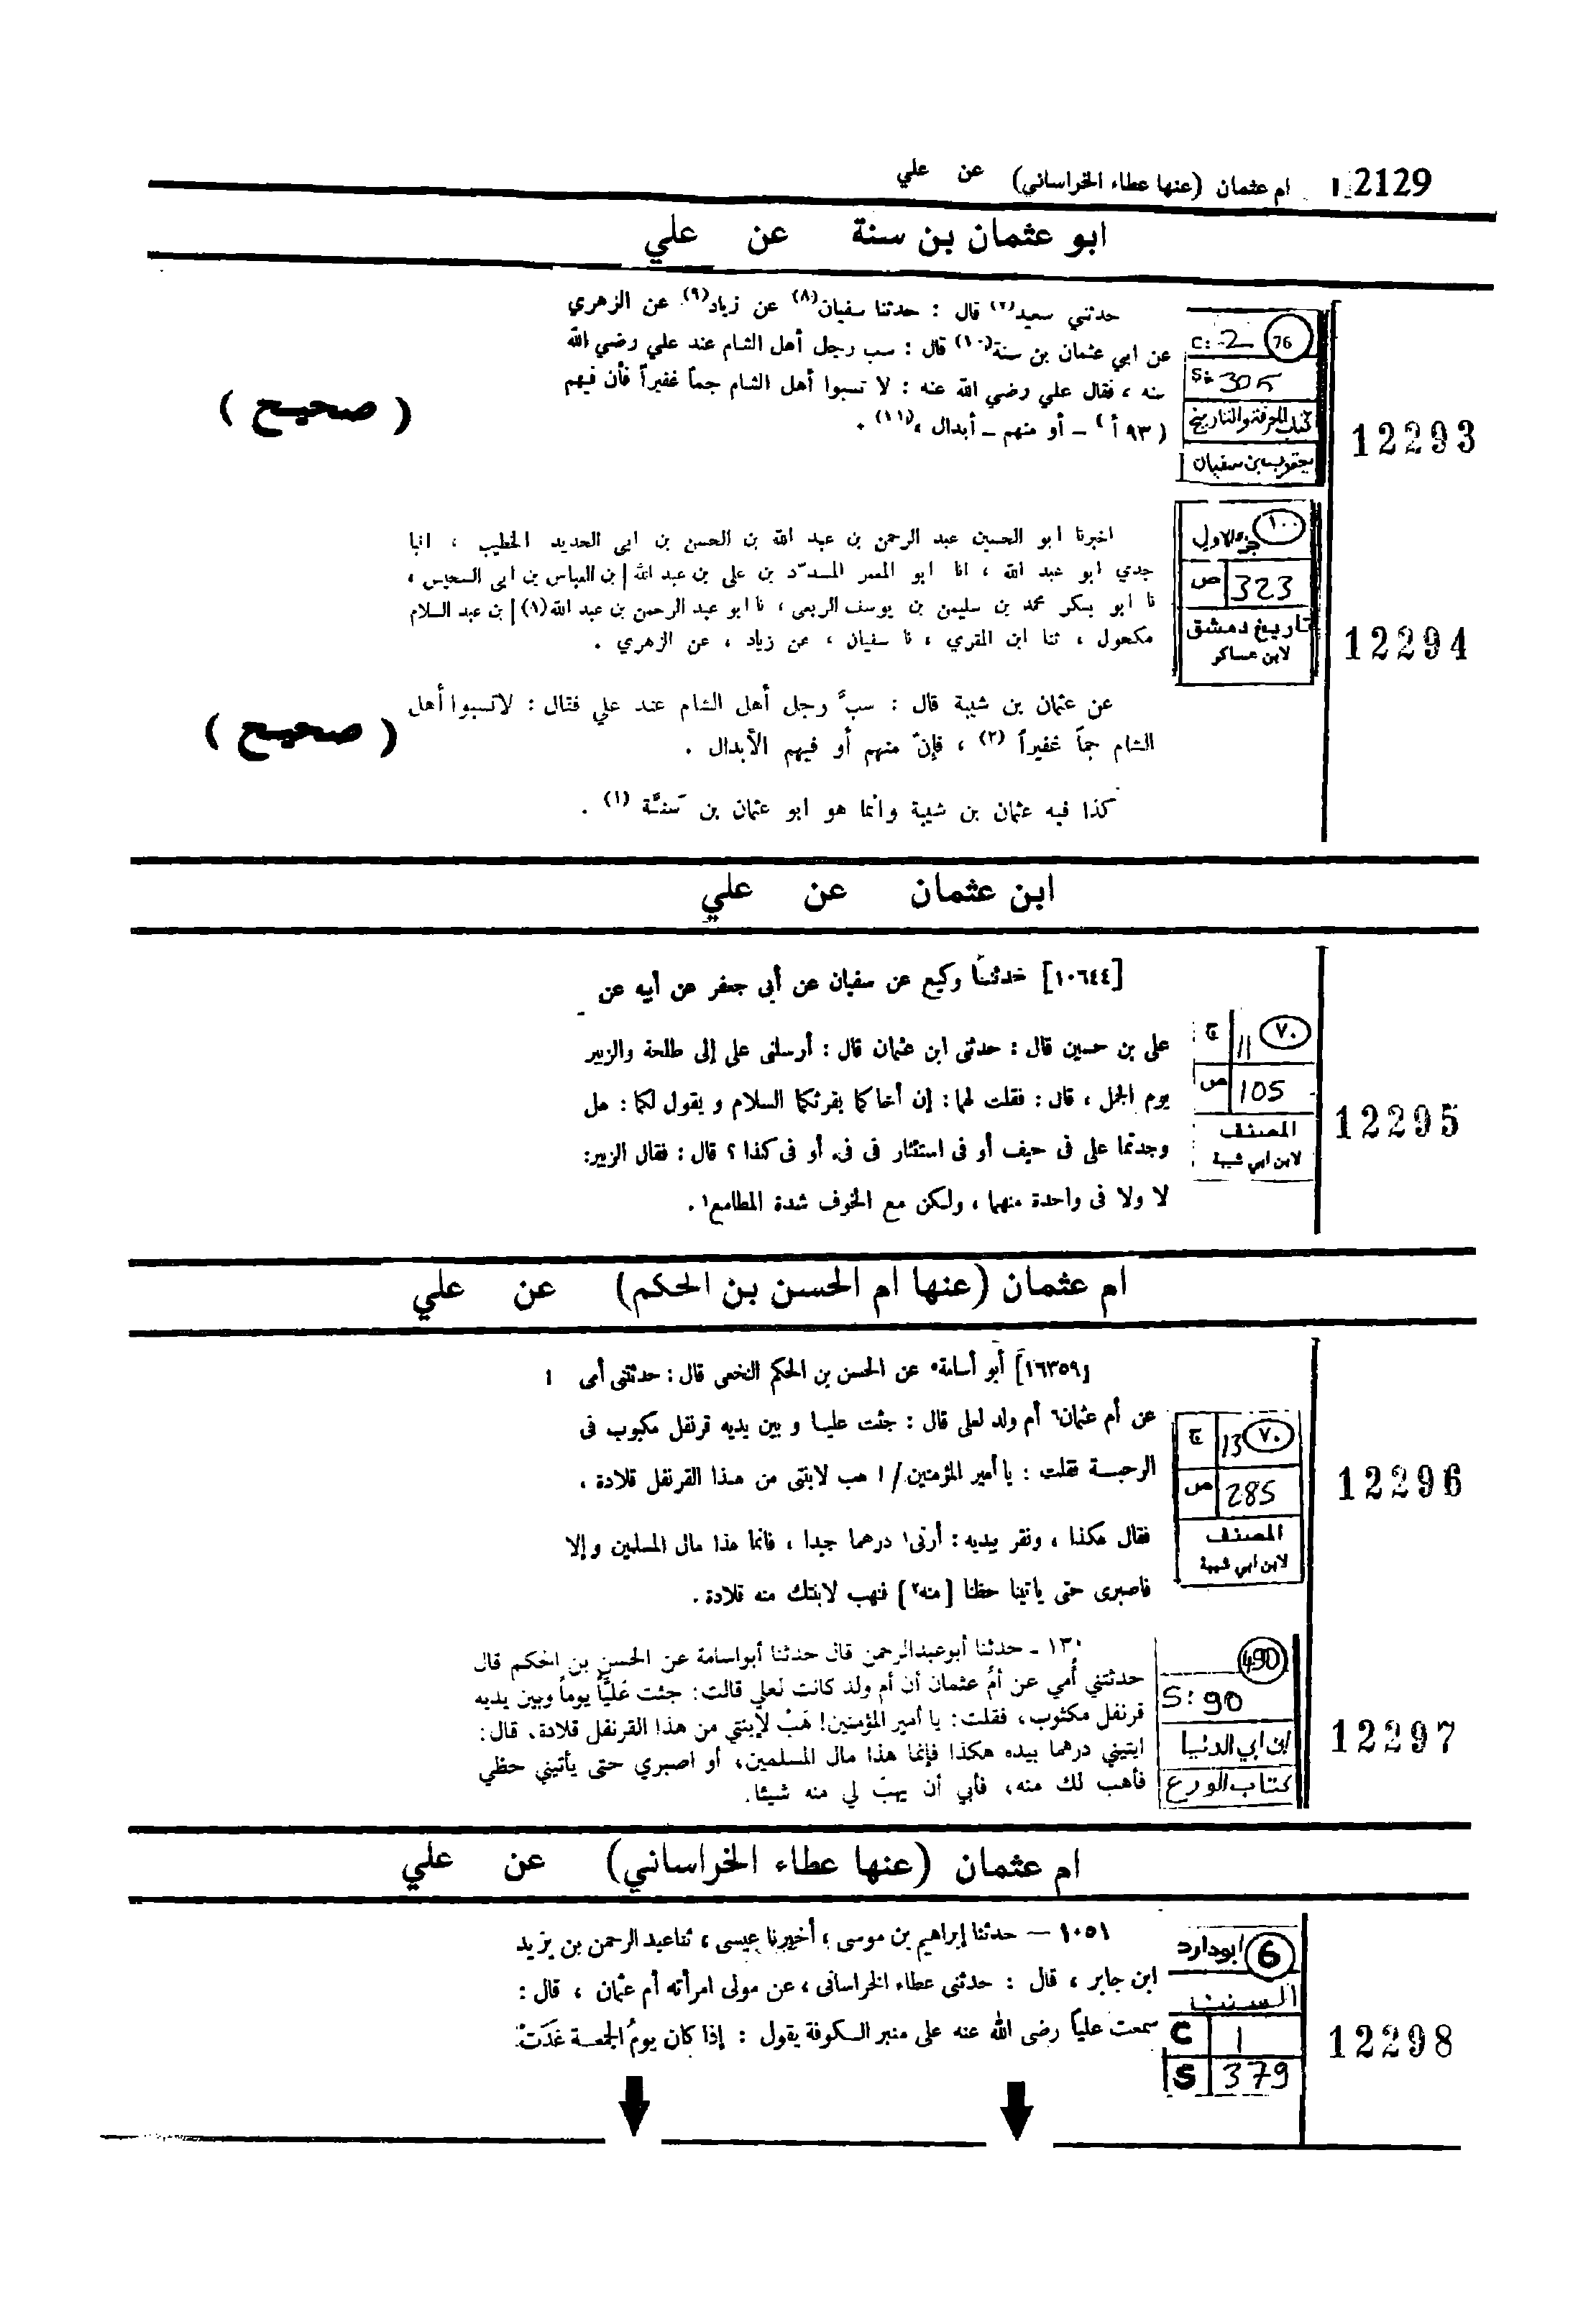 2129 ام عثمان (عنها عطاء الخراساني) عن علي
ابو عثمان بن سنة عن علي
حدثني سعيد(٧) قال : حدثنا سفيان(٨) عن زياد(٩) عن الزهري
عن ابي عثمان بن سنة(١٠) قال : سب رجل أهل الشام عند علي رضي الله
عنه ، فقال علي رضي الله عنه : لا تسبوا أهل الشام جماً غفيراً فأن فيهم
(٩٣ أ) ـ أو منهم ـ أبدال ،(١١) .
( صحيح )
76
C: 2
S: 305
كتاب المعرفة والتاريخ
يعقوب بن سفيان
12293
اخبرنا ابو الحسين عبد الرحمن بن عبد الله بن الحسن بن ابي الحديد الخطيب ، انبا
جدي ابو عبد الله ، انا ابو المعمر المسدّد بن علي بن عبد الله | بن العباس بن ابي السجيس ،
نا ابو بكر محمد بن سليمن بن يوسف الربعى ، نا ابو عبد الرحمن بن عبد الله (١) | بن عبد السلام
مكحول ، ثنا ابن المقري ، نا سفيان ، عن زياد ، عن الزهري .
عن عثمان بن شيبة قال : سبَّ رجل أهل الشام عند علي فقال : لاتسبوا أهل
الشام جماً غفيراً (٢) ، فإنّ منهم أو فيهم الأبدال .
كذا فيه عثمان بن شيبة وانما هو ابو عثمان بن سنَّة (١) .
( صحيح )
١٠٠
جزء الاول
ص 323
تاريخ دمشق
لابن عساكر
12294
ابن عثمان عن علي
[١٠٦٤٤] حدثنا وكيع عن سفيان عن أبى جعفر عن أبيه عن
على بن حسين قال : حدثنى ابن عثمان قال : أرسلنى على إلى طلحة والزبير
يوم الجمل ، قال : فقلت لهما : إن أخاكما يقرئكما السلام و يقول لكما : هل
وجدتما على فى حيف أو فى استئثار فى فىء أو فى كذا ؟ قال : فقال الزبير :
لا ولا فى واحدة منهما ، ولكن مع الخوف شدة المطامع١ .
٧٠
ج 11
ص 105
المصنف
لابن ابي شيبة
12295
ام عثمان (عنها ام الحسن بن الحكم) عن علي
[١٦٣٥٩] أبو أسامة٥ عن الحسن بن الحكم النخعى قال : حدثتنى أمى
عن أم عثمان٦ أم ولد لعلى قال : جئت عليا و بين يديه قرنفل مكبوب فى
الرحبة فقلت : يا أمير المؤمنين / ! هب لابنتى من هذا القرنفل قلادة ،
فقال هكذا ، ونقر بيديه : أرنى١ درهما جيدا ، فانما هذا مال المسلمين و إلا
فاصبرى حتى ياتينا حظنا [منه٢] فنهب لابنتك منه قلادة .
٧٠
ج 13
ص 285
المصنف
لابن ابي شيبة
12296
١٣٠ ـ حدثنا أبوعبدالرحمن قال حدثنا أبواسامة عن الحسن بن الحكم قال
حدثتني أُمي عن أمُ عثمان أن أم ولد كانت لعلي قالت : جئت عَليَّاً يوماً وبين يديه
قرنفل مكثوب ، فقلت : يا أمير المؤمنين ! هَبْ لإبنتي من هذا القرنفل قلادة ، قال :
ايتيني درهما بيده هكذا فإنما هذا مال المسلمين ، أو اصبري حتى يأتيني حظي
فأهب لك منه ، فأبي أن يهب لي منه شيئا .
490
S: 90
ابن ابي الدنيا
كتاب الورع
12297
ام عثمان (عنها عطاء الخراساني) عن علي
١٠٥١ — حدثنا إبراهيم بن موسى ، أخبرنا عيسى ، ثنا عبد الرحمن بن يزيد
ابن جابر ، قال : حدثنى عطاء الخراسانى ، عن مولى امرأته أم عثمان ، قال :
سمعت علياً رضى الله عنه على منبر الكوفة يقول : إذا كان يومُ الجمعة غَدَتْ
6 ابوداود
السنن
C 1
S 379
12298